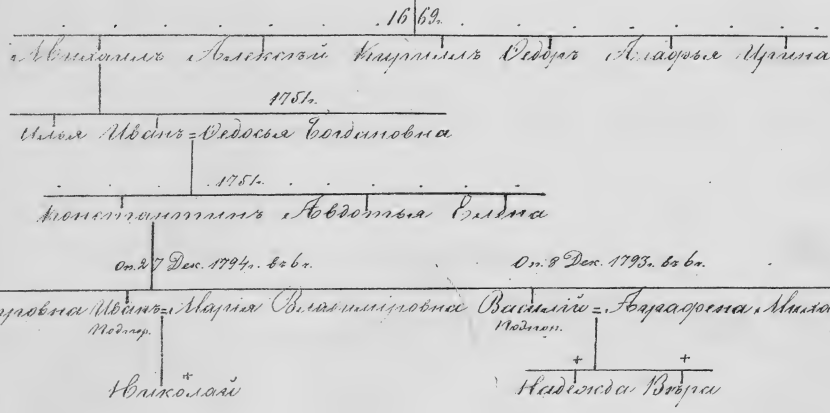 1669.
Михаилъ Алексѣй Кириллъ Ѳедоръ Агафья Ирина
1751.
Илья Иванъ = Ѳедосья Богдановна
1751.
Константинъ Авдотья Елена
Оп. 27 Дек. 1794г. въ 6ч. Оп. 8 Дек. 1793г. въ 6ч.
Иванъ = Марія Владиміровна Василій = Аграфена
Подпор.
Николай Надежда Вѣра